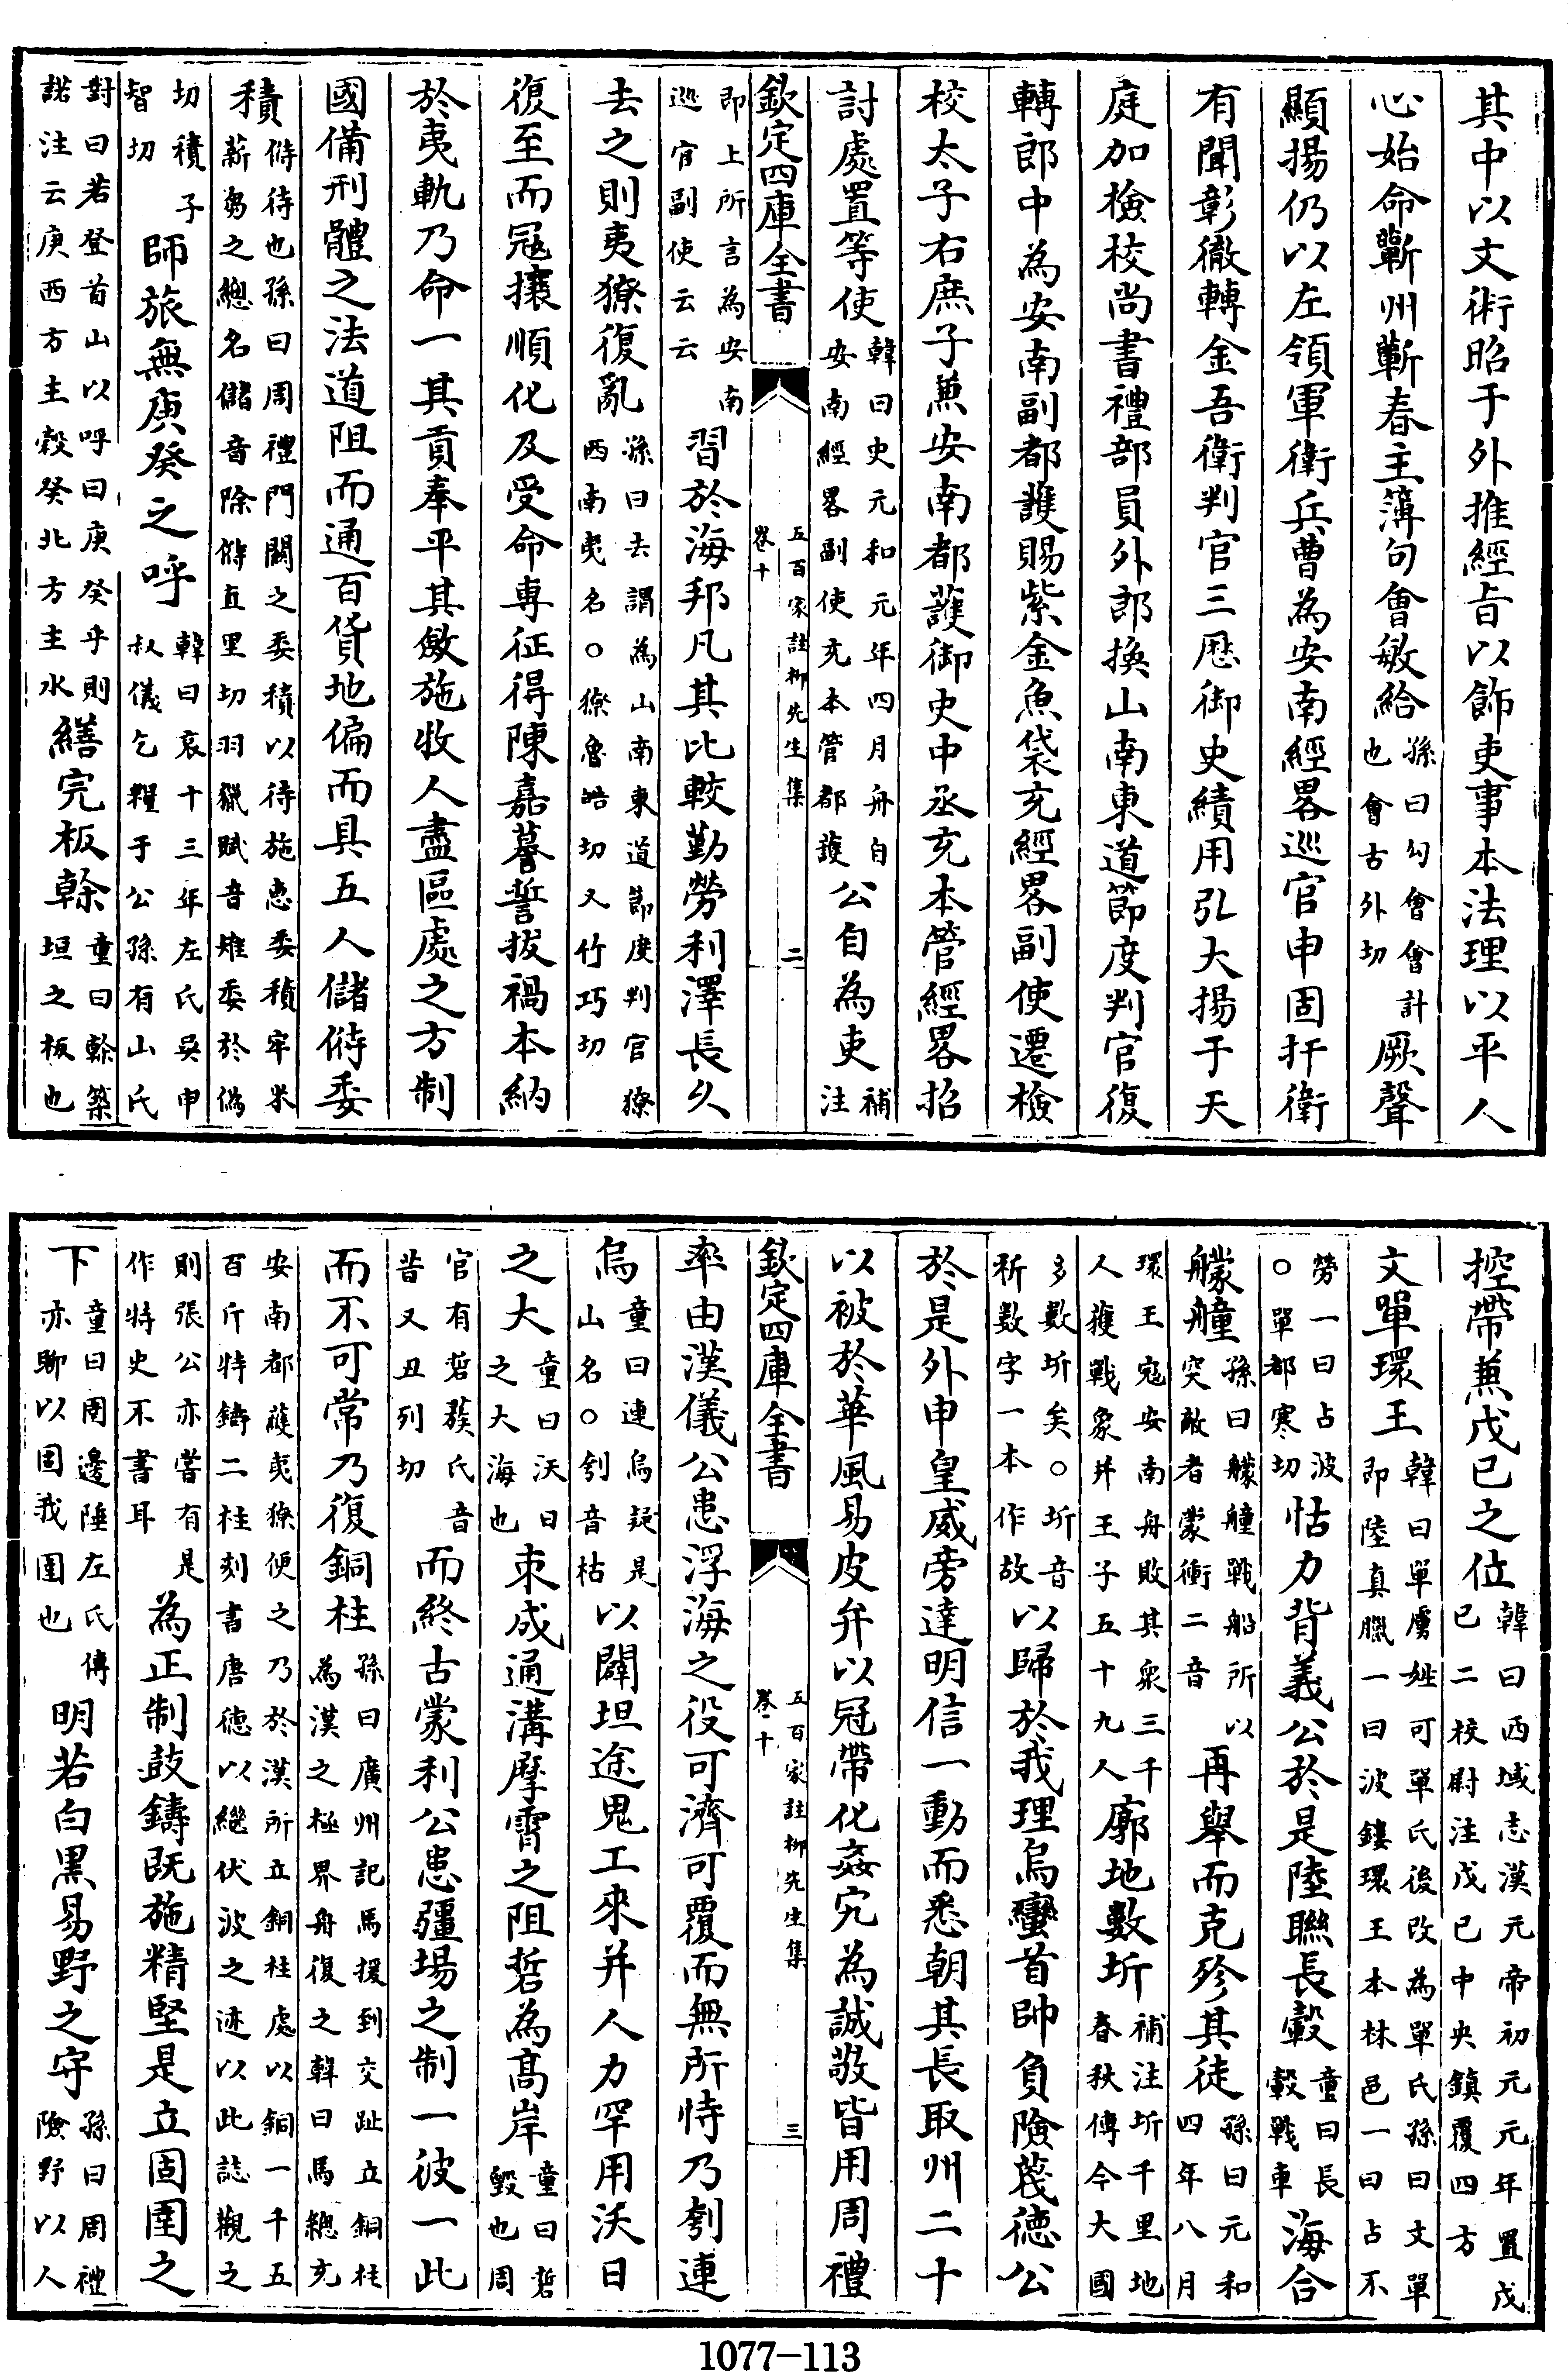 其中以文術昭于外推經旨以飾吏事本法理以平人
心始命蘄州蘄春主簿句會敏給孫曰勾會會計也會古外切厥聲
顯揚仍以左領軍衛兵曹為安南經畧巡官申固扞衛
有聞彰徹轉金吾衛判官三歷御史績用弘大揚于天
庭加檢校尚書禮部員外郎換山南東道節度判官復
轉郎中為安南副都護賜紫金魚袋充經畧副使遷檢
校太子右庶子兼安南都護御史中丞充本管經畧招
討處置等使韓曰史元和元年四月舟自安南經畧副使充本管都護公自為吏補注
欽定四庫全書 五百家註柳先生集 卷十 二
即上所言為安南巡官副使云云習於海邦凡其比較勤勞利澤長久
去之則夷獠復亂孫曰去謂為山南東道節度判官獠西南夷名○獠魯皓切又竹巧切
復至而寇攘順化及受命專征得陳嘉謩誓拔禍本納
於夷軌乃命一其貢奉平其斂施收人盡區處之方制
國備刑體之法道阻而通百貨地偏而具五人儲偫委
積偫待也孫曰周禮門關之委積以待施惠委積牢米薪芻之總名儲音除偫直里切羽獵賦音雉委於偽
切積子智切師旅無庚癸之呼韓曰哀十三年左氏吳申叔儀乞糧于公孫有山氏
對曰若登首山以呼曰庚癸乎則諾注云庚西方主穀癸北方主水繕完板榦童曰榦築垣之板也
控帶兼戊已之位韓曰西域志漢元帝初元元年置戊已二校尉注戊已中央鎮覆四方
文單環王韓曰單虜姓可單氏後改為單氏孫曰文單即陸真臘一曰波鏤環王本林邑一曰占不
勞一曰占波○單都寒切怙力背義公於是陸聯長轂童曰長轂戰車海合
艨艟孫曰艨艟戰船所以突敵者蒙衝二音再舉而克殄其徒孫曰元和四年八月
環王寇安南舟敗其衆三千人獲戰象并王子五十九人廓地數圻補注圻千里地春秋傳今大國
多數圻矣○圻音祈數字一本作故以歸於我理烏蠻首帥負險蔑德公
於是外申皇威旁達明信一動而悉朝其長取州二十
以被於華風易皮弁以冠帶化姦宄為誠敬皆用周禮
欽定四庫全書 五百家註柳先生集 卷十 三
率由漢儀公患浮海之役可濟可覆而無所恃乃刳連
烏童曰連烏疑是山名○刳音枯以闢坦途鬼工來并人力罕用沃日
之大童曰沃日之大海也朿成通溝摩霄之阻硩為髙岸童曰硩毀也周
官有硩蔟氏音昔又丑列切而終古蒙利公患疆埸之制一彼一此
而不可常乃復銅柱孫曰廣州記馬援到交趾立銅柱為漢之極界舟復之韓曰馬總充
安南都護夷獠便之乃於漢所立銅柱處以銅一千五百斤特鑄二柱刻書唐徳以繼伏波之迹以此誌觀之
則張公亦嘗有是作特史不書耳為正制鼓鑄既施精堅是立固圉之
下童曰圉邊陲左氏傳亦聊以固我圉也明若白黑易野之守孫曰周禮險野以人
1077-113